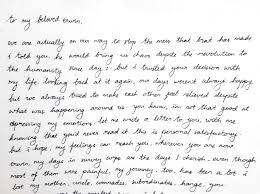 to my beloved erwin,
we are actually on our way to stop the mess that brat has made.
i told you, he would bring us chaos despite the revolution to
the humanity since day 1 but i trusted your decision with
my life. looking back at it again, our days weren't always happy
but we always tried to make each other feel relieved despite
what was happening around us. you know, i'm not that good at
expressing my emotions. let me write a letter to you, with me
knowing that you'd never read it. this is personal satisfactory;
but i hope, my feelings can reach you, wherever you are now.
erwin, my days in survey corps are the days i cherish even though
most of them were painful. my journey, too, has been a lot. i
lost my mother, uncle, comrades, subordinates, hange, you